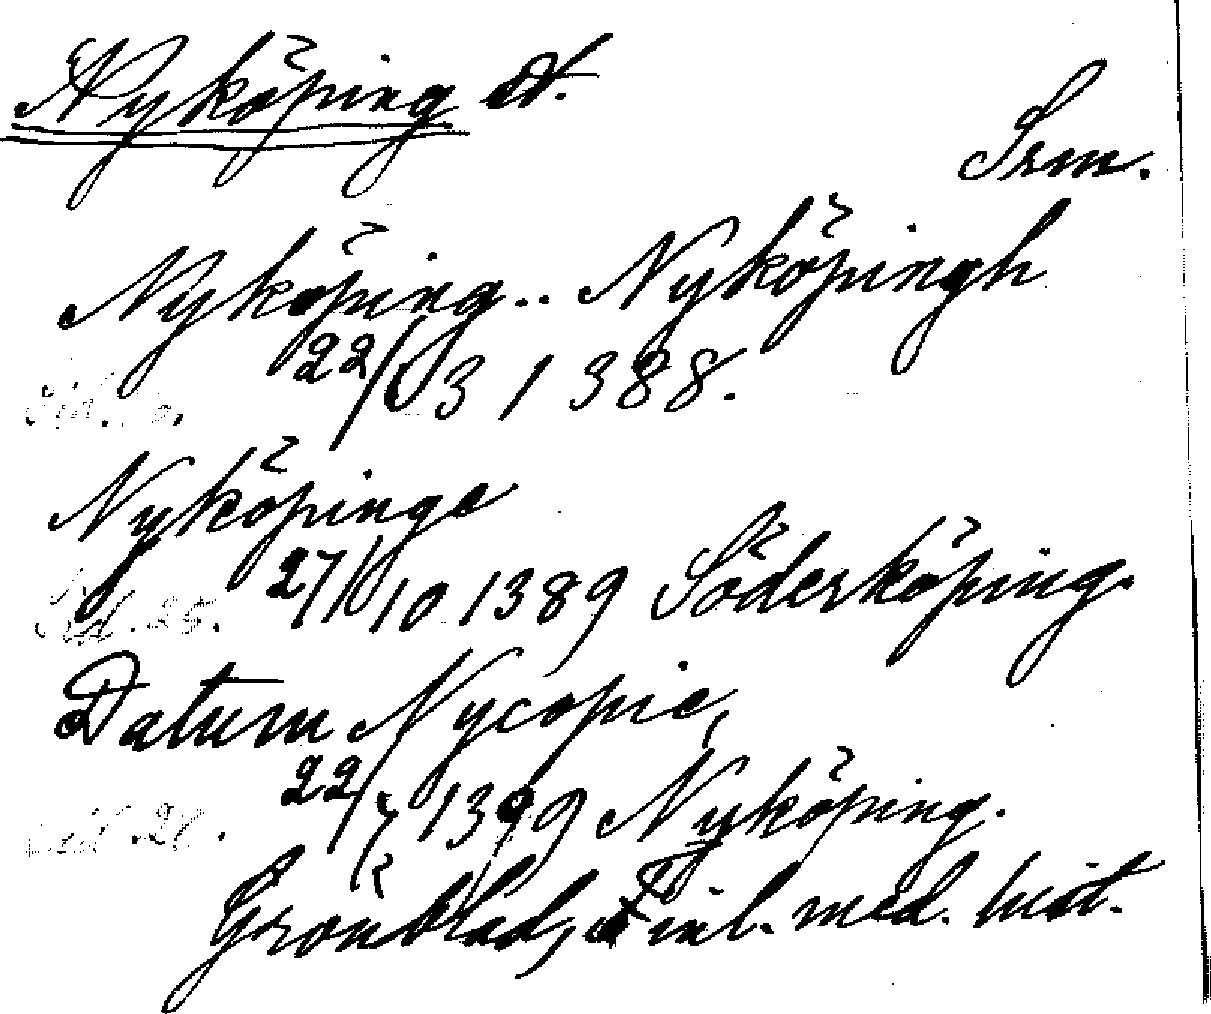 Nyköping st.
Srm.
Nyköping.. Nyköpingh
22/3 1388.
Nyköpinge
sid. 25. 27/10 1389 Söderköping.
Datum Nycopie,
22/7 1399 Nyköping.
Grönblad, Finl. med. hist.